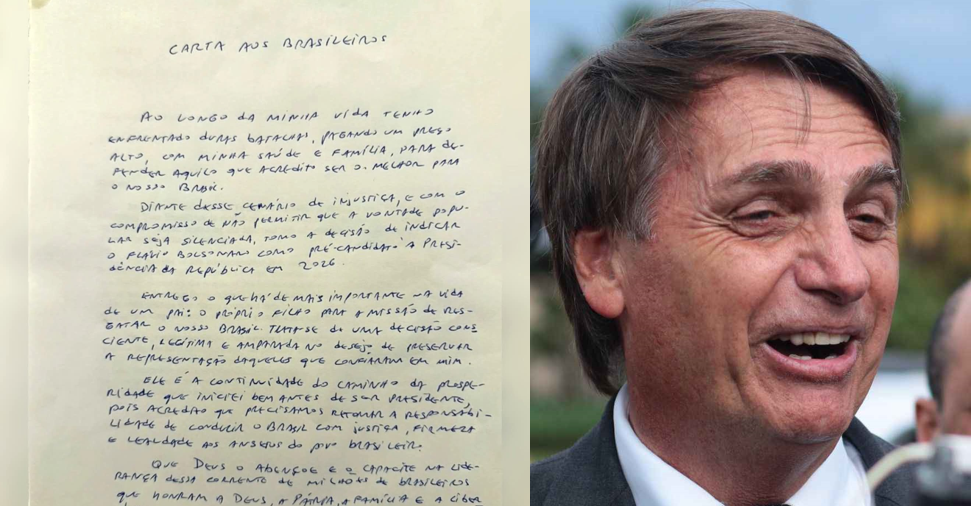 CARTA AOS BRASILEIROS
AO LONGO DA MINHA VIDA TENHO
ENFRENTADO DURAS BATALHAS, PAGANDO UM PREÇO
ALTO, COM MINHA SAÚDE E FAMÍLIA, PARA DE-
FENDER AQUILO QUE ACREDITO SER O MELHOR PARA
O NOSSO BRASIL.
DIANTE DESSE CENÁRIO DE INJUSTIÇA, E COM O
COMPROMISSO DE NÃO PERMITIR QUE A VONTADE POPU-
LAR SEJA SILENCIADA, TOMO A DECISÃO DE INDICAR
O FLÁVIO BOLSONARO COMO PRÉ-CANDIDATO À PRESI-
DÊNCIA DA REPÚBLICA EM 2026.
ENTREGO O QUE HÁ DE MAIS IMPORTANTE NA VIDA
DE UM PAI: O PRÓPRIO FILHO PARA A MISSÃO DE RES-
GATAR O NOSSO BRASIL. TRATA-SE DE UMA DECISÃO CONS
CIENTE, LEGÍTIMA E AMPARADA NO DESEJO DE PRESERVAR
A REPRESENTAÇÃO DAQUELES QUE CONFIARAM EM MIM.
ELE É A CONTINUIDADE DO CAMINHO DA PROSPE-
RIDADE QUE INICIEI BEM ANTES DE SER PRESIDENTE,
POIS ACREDITO QUE PRECISAMOS RETOMAR A RESPONSABI-
LIDADE DE CONDUZIR O BRASIL COM JUSTIÇA, FIRMEZA
E LEALDADE AOS ANSEIOS DO POVO BRASILEIR.
QUE DEUS O ABENÇOE E O CAPACITE NA LIDE-
RANÇA DESSA CORRENTE DE MILHÕES DE BRASILEIROS
QUE HONRAM A DEUS, A PÁTRIA, A FAMÍLIA E A LIBER